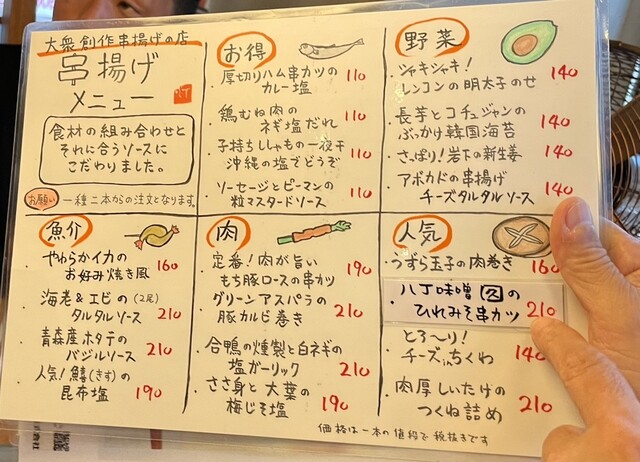 大衆創作串揚げの店
串揚げ
メニュー
食材の組み合わせと
それに合うソースに
こだわりました。
お願い 一種二本からの注文となります。
お得
厚切りハム串カツの
カレー塩 110
鶏むね肉の
ネギ塩だれ 110
子持ちししゃもの一夜干
沖縄の塩でどうぞ 110
ソーセージとピーマンの
粒マスタードソース 110
野菜
シャキシャキ!
レンコンの明太子のせ 140
長芋とコチュジャンの
ぶっかけ韓国海苔 140
さっぱり!岩下の新生姜 140
アボカドの串揚げ
チーズタルタルソース 140
魚介
やわらかイカの
お好み焼き風 160
海老&エビの(2尾)
タルタルソース 210
青森産ホタテの
バジルソース 210
人気!鱚(きす)の
昆布塩 190
肉
定番!肉が旨い
もち豚ロースの串カツ 190
グリーンアスパラの
豚カルビ巻き 210
合鴨の燻製と白ネギの
塩ガーリック 210
ささ身と大葉の
梅じそ塩 190
人気
うずら玉子の肉巻き 160
八丁味噌の
ひれみそ串カツ 210
とろ〜り!
チーズinちくわ 140
肉厚しいたけの
つくね詰め 210
価格は一本の値段で税抜きです